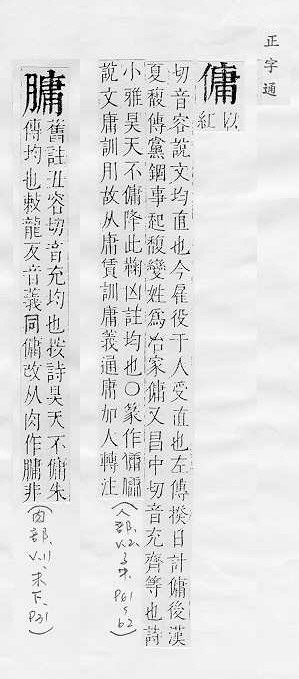 正字通
傭
以
紅
切音容說文均直也今雇役于人受直也左傳揆日計傭後漢
夏馥傳黨錮事起馥變姓爲冶家傭又昌中切音充齊等也詩
小雅昊天不傭降此鞠凶註均也○篆作
說文庸訓用故从庸賃訓庸義通庸加人轉注
(人部、
膅
舊註丑容切音充均也按詩昊天不傭朱
傳均也敕龍反音義同傭改从肉作膅非
(肉部、